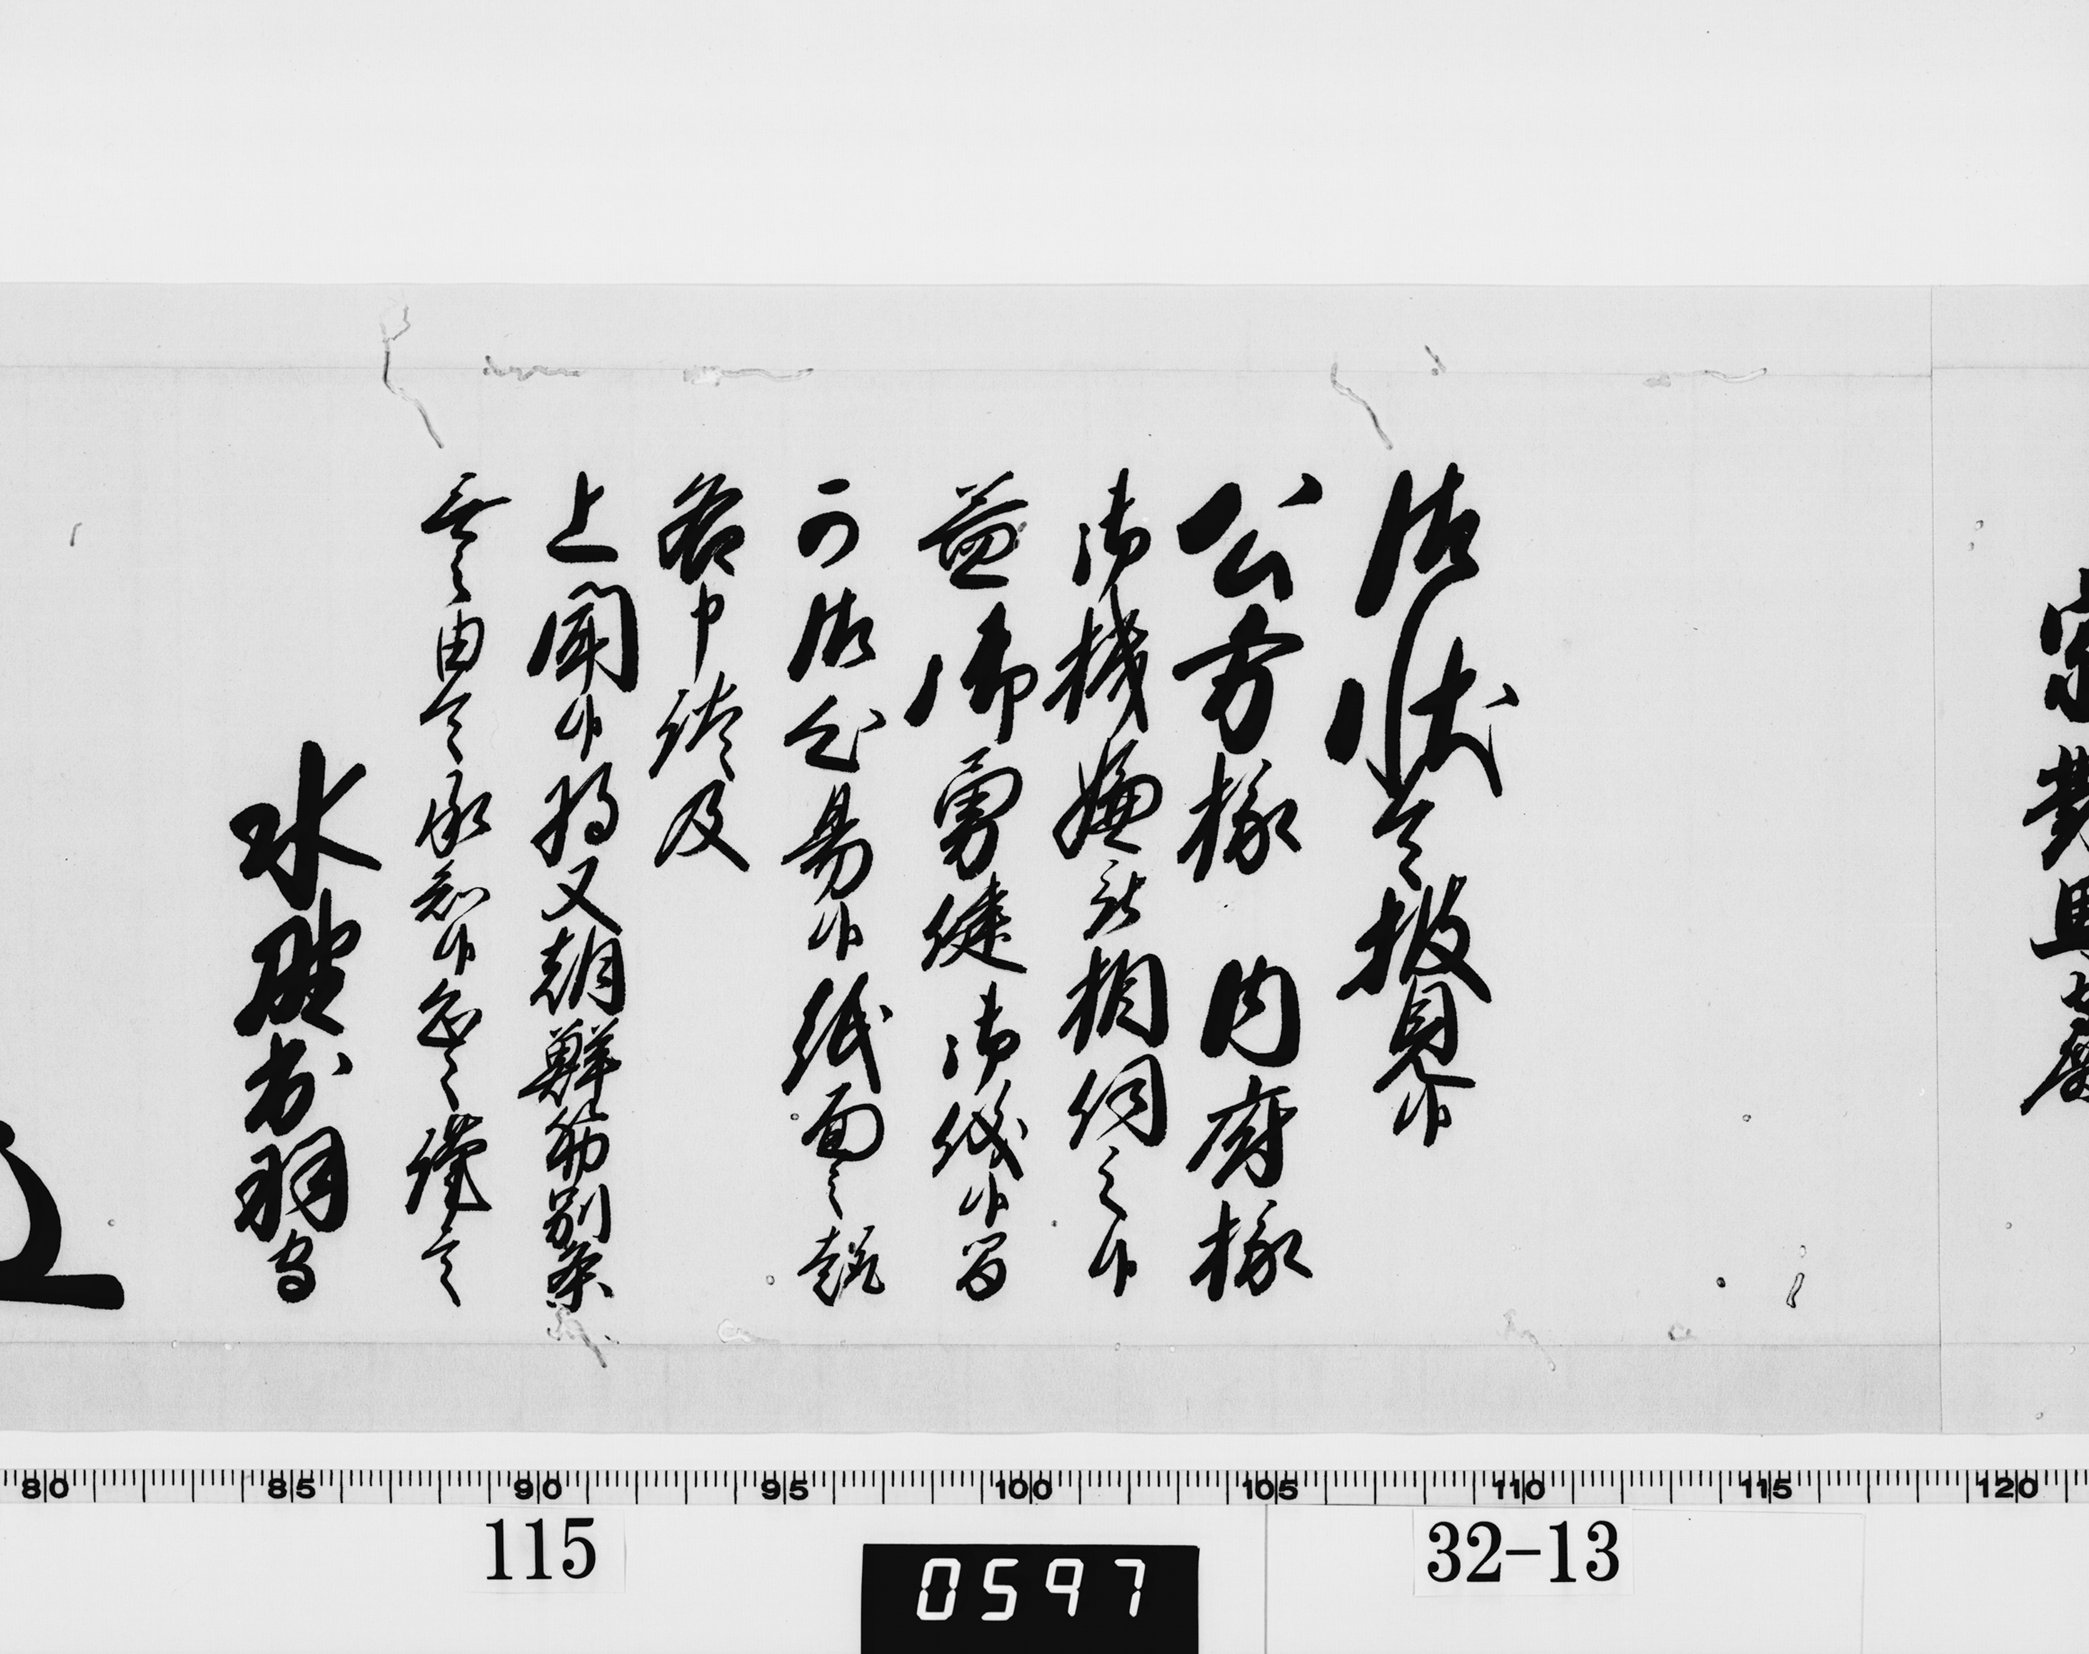 宗對馬守殿
御状令披見候
公方様 内府様
御機嫌被相伺之候
益御勇健御儀候間
可御心易候紙面之趣
各申談及
上聞候将又朝鮮筋別条
無之由令承知候恐々謹言
水野出羽守
115
0597
32-13
80 85 90 95 100 105 110 115 120